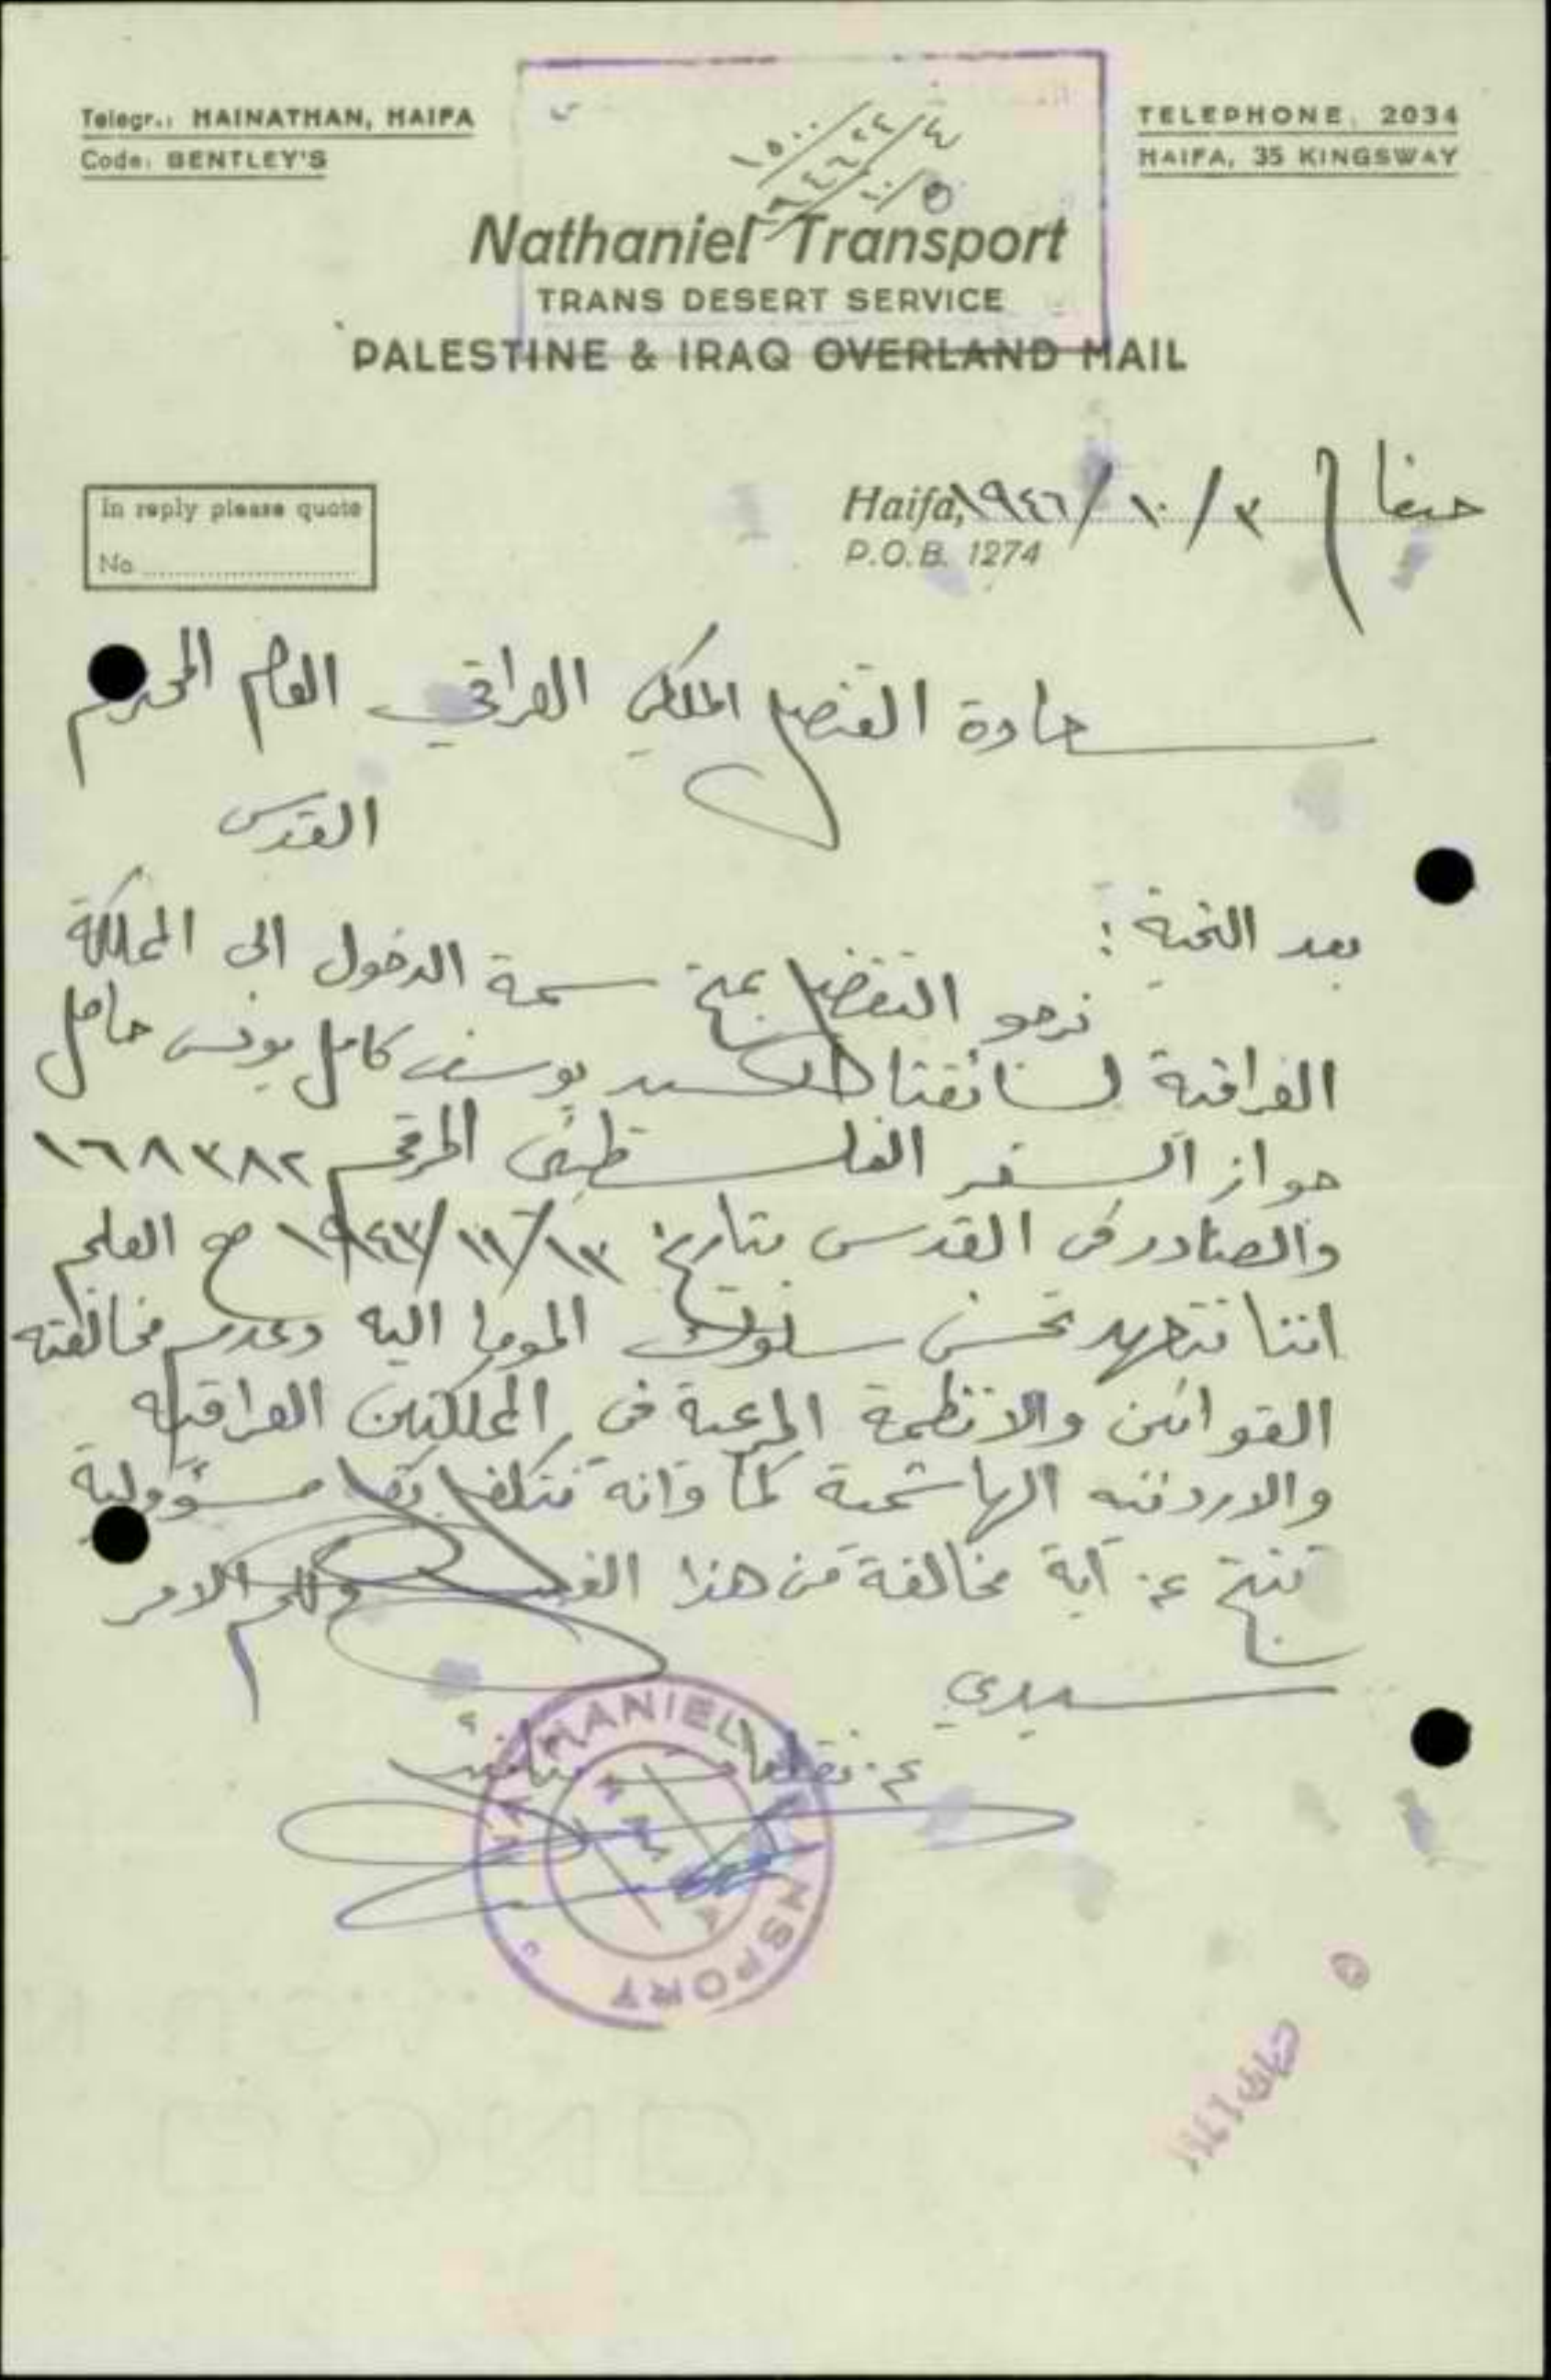 Telegr.: HAINATHAN, HAIFA
Code: BENTLEY'S
TELEPHONE: 2034
HAIFA, 35 KINGSWAY
١٥٠٠
Nathaniel Transport
TRANS DESERT SERVICE
PALESTINE & IRAQ OVERLAND MAIL
In reply please quote
No
حيفا في ٣/١٠/١٩٤٦
Haifa,
P.O.B. 1274
سعادة القنصل الملكي العراقي العام المحترم
القدس
بعد التحية :
نرجو التفضل بمنح سمة الدخول الى المملكة
العراقية لسائقنا السيد يوسف كامل يونس حامل
جواز السفر الفلسطيني المرقم ١٦٨٣٨٢
والصادر في القدس بتاريخ ١٣/١١/١٩٤٣ مع العلم
اننا نتعهد بحسن سلوك الموما اليه وعدم مخالفته
القوانين والانظمة المرعية في المملكتين العراقية
والاردنيه الهاشمية كما وانه نتكفل بكل مسؤولية
تنتج عن اية مخالفة من هذا القبيل ولكم الامر
سيدي
عن نقليات
NATHANIEL TRANSPORT